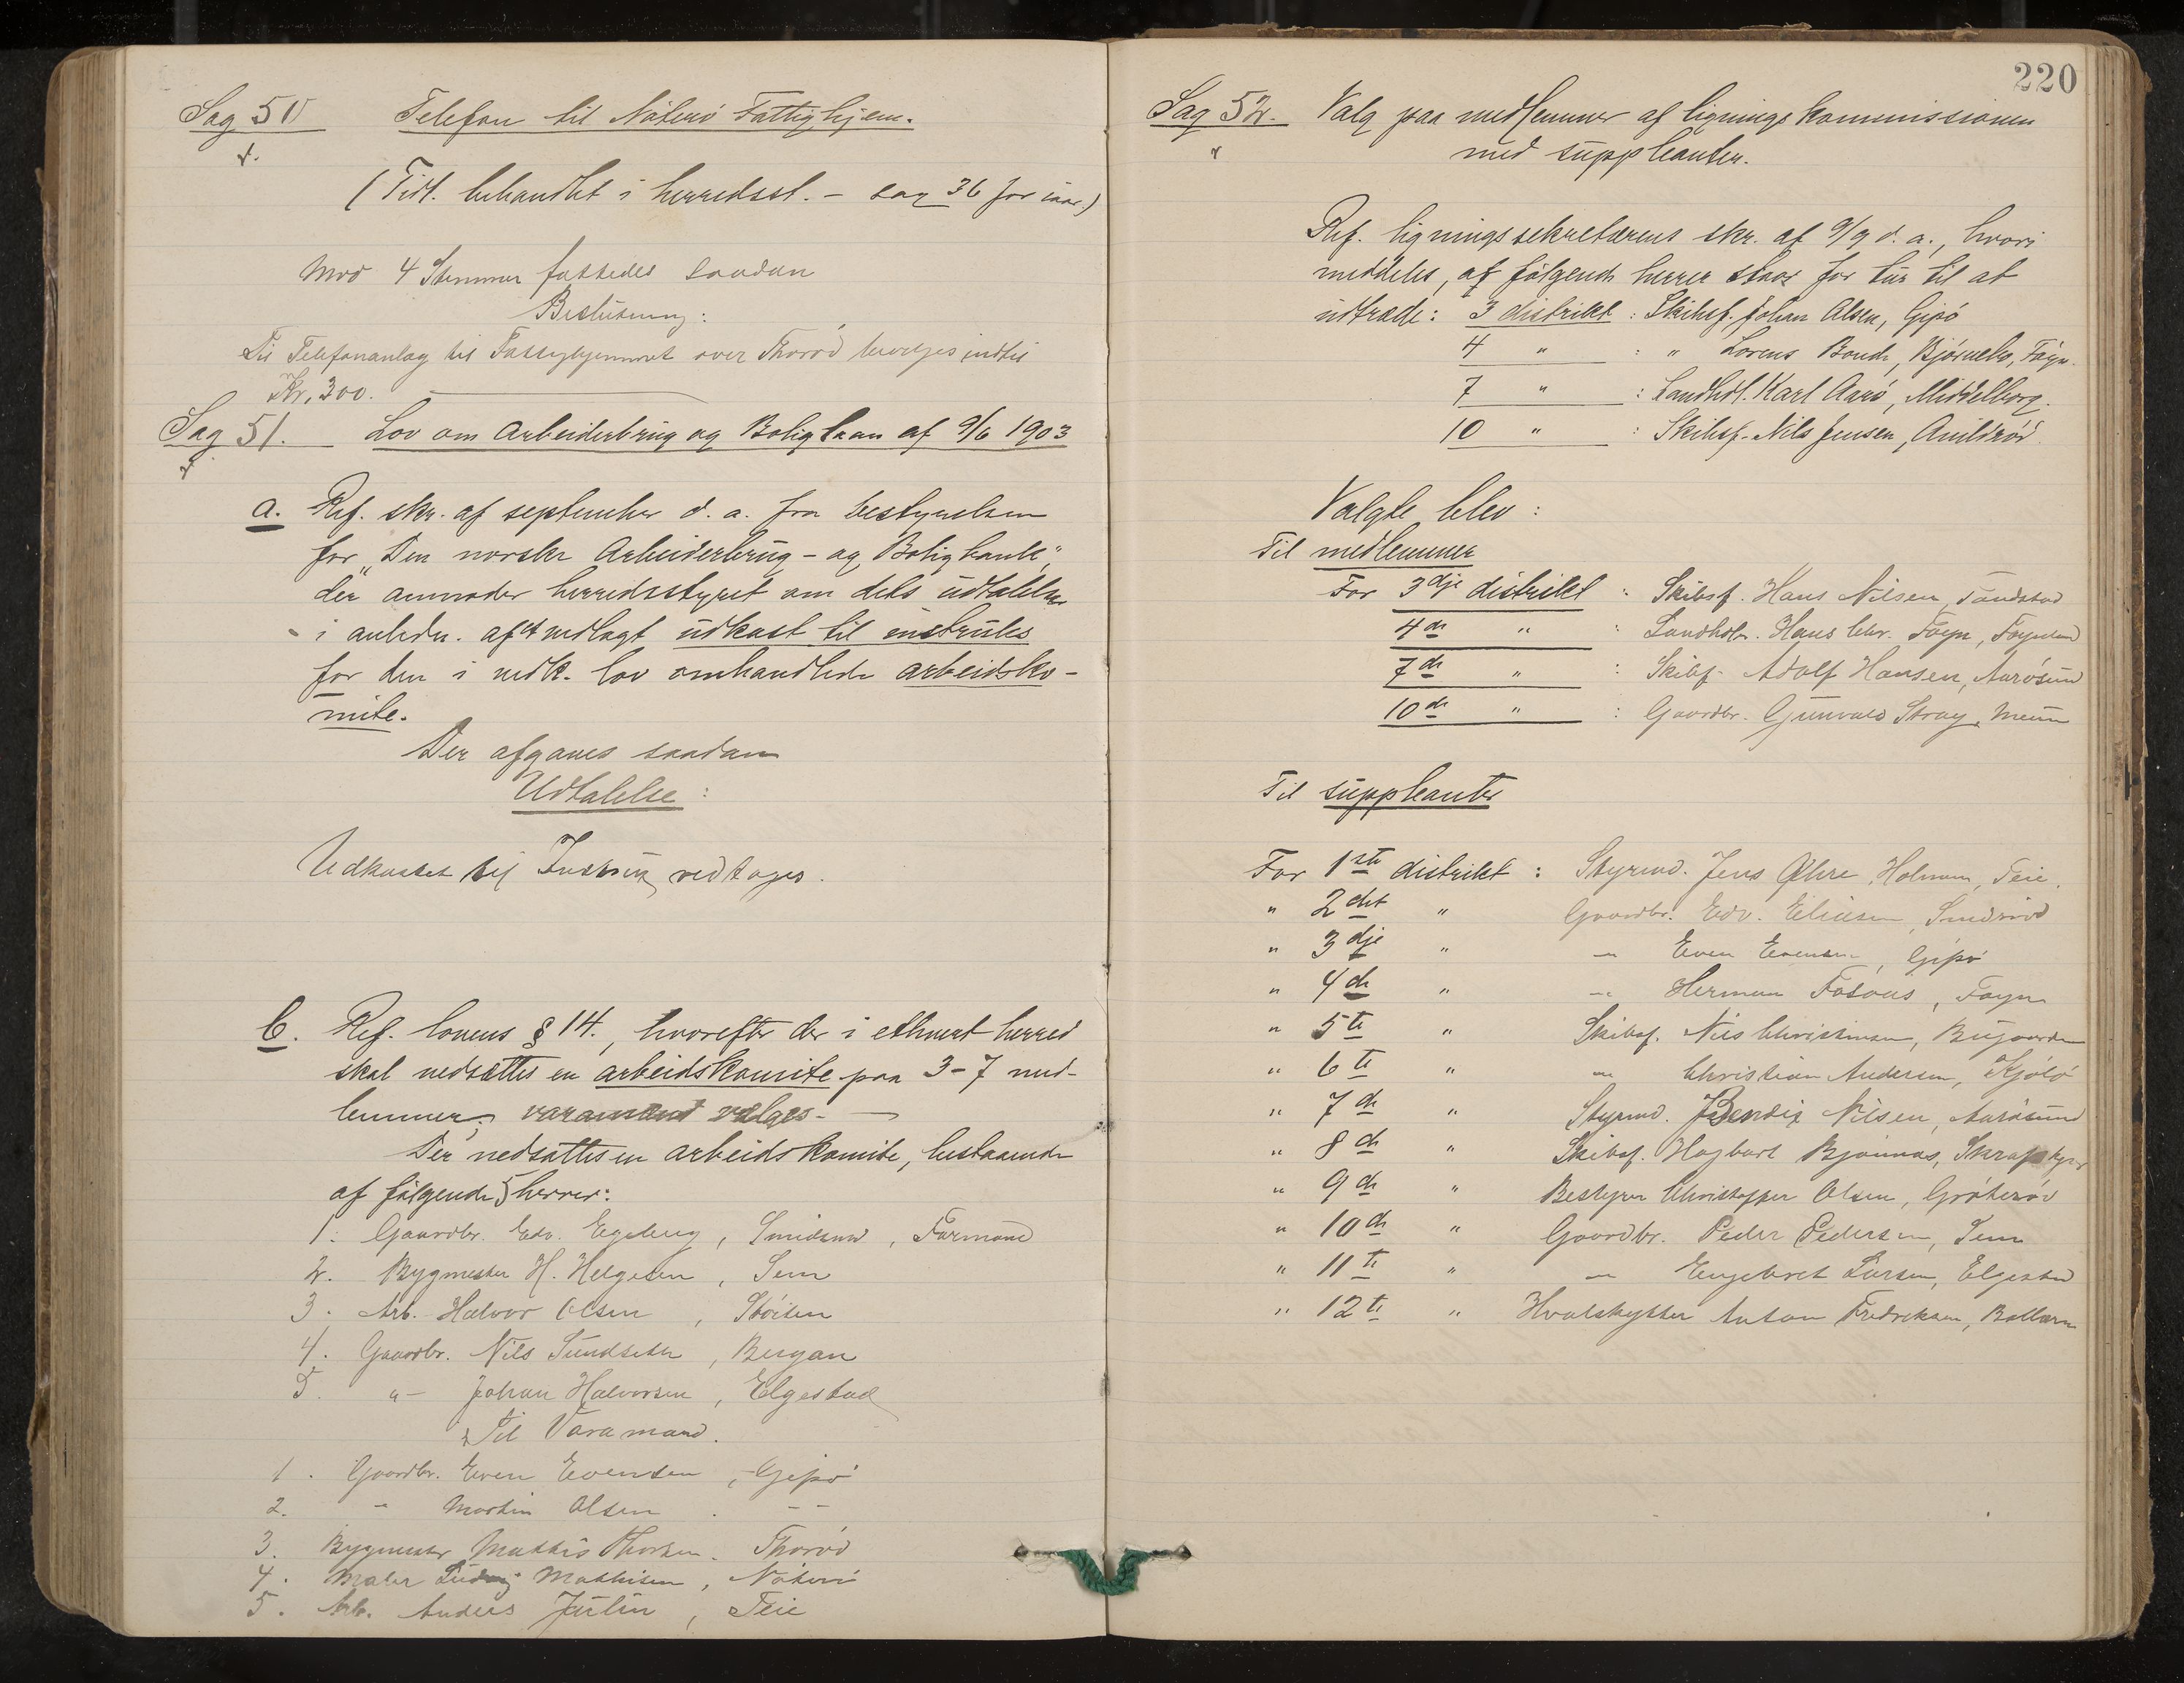 Sag 50 Telefon til Nøterø Fattighjem.
(Tidl. behandlet i herredsst. – sag 36 for iaar.)
Mod 4 Stemmer fattedes saadan
Beslutning:
Til Telefonanlæg til Fattighjemmet over Thorød bevilges indtil
Kr. 300.
Sag 51. Lov om Arbeiderbrug og Boliglaan af 9/6 1903
a. Ref. skr. af september d. a. fra bestyrelsen
for "Den norske Arbeiderbrug- og Boligbank",
der anmoder herredsstyret om dets udtalelse
i anledn. af et vedlagt udkast til instruks
for den i nedn. lov omhandlede arbeidsko-
mite.
Der afgaves saadan
Udtalelse:
Udkastet til Instrux vedtoges.
b. Ref. lovens § 14., hvorefter der i ethvert herred
skal nedsættes en arbeidskomite paa 3-7 med-
lemmer; varamænd vælges. —
Der nedsattes en arbeidskomite, bestaaende
af følgende 5 herrer:
1. Gaardbr. Edv. Egeberg, Smidsrød, Formand
2. Bygmester H. Helgesen, Sem
3. Arb. Halvor Olsen, Støiten
4. Gaardbr. Nils Sundseth, Bergan
5. " – Johan Halvorsen, Elgestad
Til Varamænd.
1. Gaardbr. Even Evensen, Gipø
2. " Martin Olsen – –
3. Bygmester Mathis Thorsen. Thorød
4. Maler Ludvig Mathisen, Nøterø
5. Arb. Anders Julin, Teie
220
Sag 52. Valg paa medlemmer af ligningskommissionen
med suppleanter.
Ref. ligningssekretærens skr. af 9/9 d. a., hvori
meddeles, at følgende herrer staar for tur til at
uttræde: 3 distrikt: Skibsf. Johan Olsen, Gipø
4 " : " Lorens Bonde, Bjørnebo, Føyn.
7 " : Landhdl. Karl Aarø, Middelborg.
10 " : Skibsf. Nils Jensen,
Valgte blev:
Til medlemmer
For 3dje distrikt : Skibsf. Hans Nilsen,
4de " : Landhdlr. Hans Chr. Føyn, Føynland
7de " : Skibsf. Adolf Hansen, Aarøsund
10de " : Gaardbr. Gunvald Stray, Meum
Til suppleanter
For 1ste distrikt : Styrmd. Jens Holmen, Teie.
" 2det " Gaardbr. Edv. Eliasen, Smidsrød
" 3dje " — Even Evensen, Gipø
" 4de " — Herman Føsaas, Føyn
" 5te " Skibsf. Nils Christiansen, Bugaarden
" 6te " — Christian Andersen, Kjøløs
" 7de " Styrmd. Bendix Nilsen, Aarøsund
" 8de " Skibsf. Hagbart Bjønnæs,
" 9de " Bestyrer Christopher Olsen, Grøterød
" 10de " Gaardbr. Peder Pedersen, Sem
" 11te " — Engebret Larsen, Elgestad
" 12te " Hvalskytter Anton Fredriksen, Bollærn